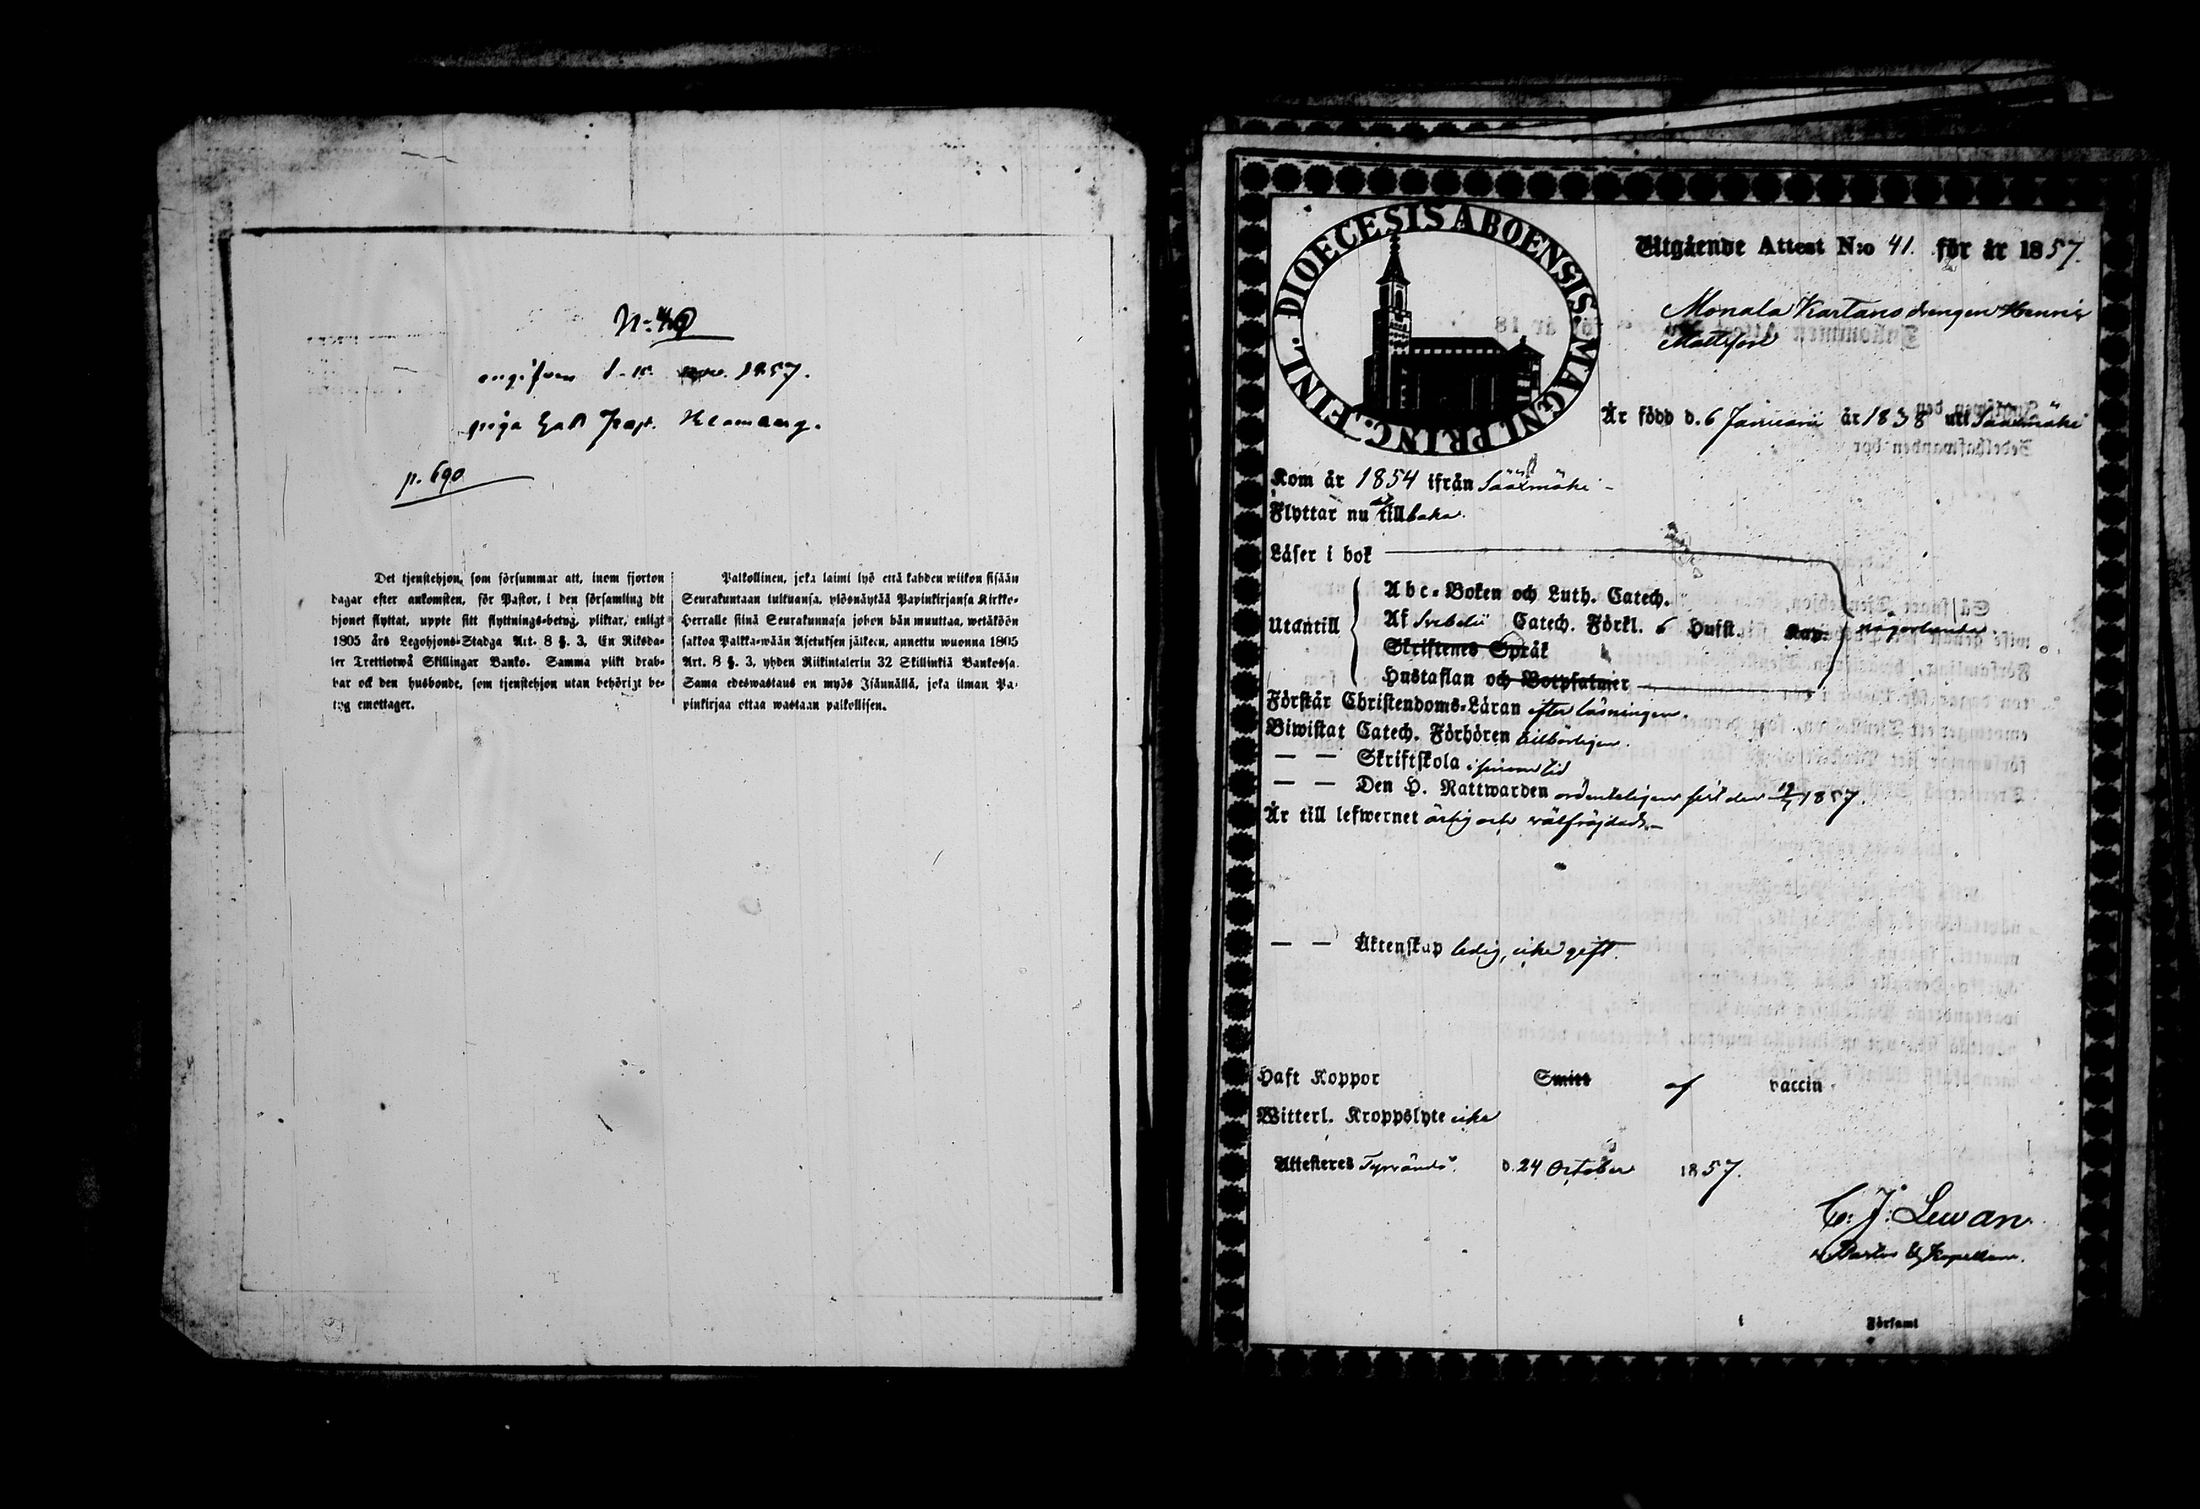 N:o 40
angifven d. 15 nov. 1857.
piga
p. 690
Det tjenstehjon, som försummar att, inom fjorton
dagar efter ankomsten, för Pastor, i den församling dit
hjonet flyttat, uppte sitt flyttnings-betyg, pliktar, enligt
1805 års Legohjons-Stadga Art. 8 §. 3, En Riksda-
ler Trettiotwå Skillingar Banko. Samma plikt drab-
bar ock den husbonde, som tjenstehjon utan behörigt be-
tyg emottager.
Palkollinen, joka laimi lyö että kahden wiikon sisään
Seurakuntaan tultuansa, ylösnäytää Papinkirjansa Kirkko-
Herralle siinä Seurakunnasa johon hän muuttaa, wetäköön
sakkoa Palkka-wään Asetuksen jälkeen, annettu wuonna 1805
Art. 8 §. 3, yhden Riikintalerin 32 Skillinkiä Bankossa.
Sama edeswastaus on myös Isännällä, joka ilman Pa-
pinkirjaa ottaa wastaan palkollisen.
DIOECESIS ABOENSIS. MAGNI. PRINC. FINL.
Utgående Attest N:o 41. för år 1857.
Monala Kartano drengen Henric
Mattsson
Är född d. 6 Januarii år 1838 uti Sääxmäki
Kom år 1854 ifrån Sääxmäki
Flyttar nu åter tillbaka.
Läser i bok
Utantill
Abc-Boken och Luth. Catech.
Af Svebelii Catech. Förkl. 6 Hufst. Kap. någorlunda
Skriftenes Språk
Hustaflan och Botpsalmer
Förstår Christendoms-Läran efter läsningen.
Biwistat Catech. Förhören tillbörligen.
— — Skriftskola i sinom tid
— — Den H. Nattwarden ordenteligen sist den 19/7 1857.
Är till lefwernet ärlig och välfrejdad.
— — Äktenskap ledig, icke gift.
Haft Koppor Smitt af vaccin
Witterl. Kroppslyte icke
Attesteras Tyrvändö. d. 24 October 1857.
C. J. Lewan
Pastor & Kapellan.
i Församl